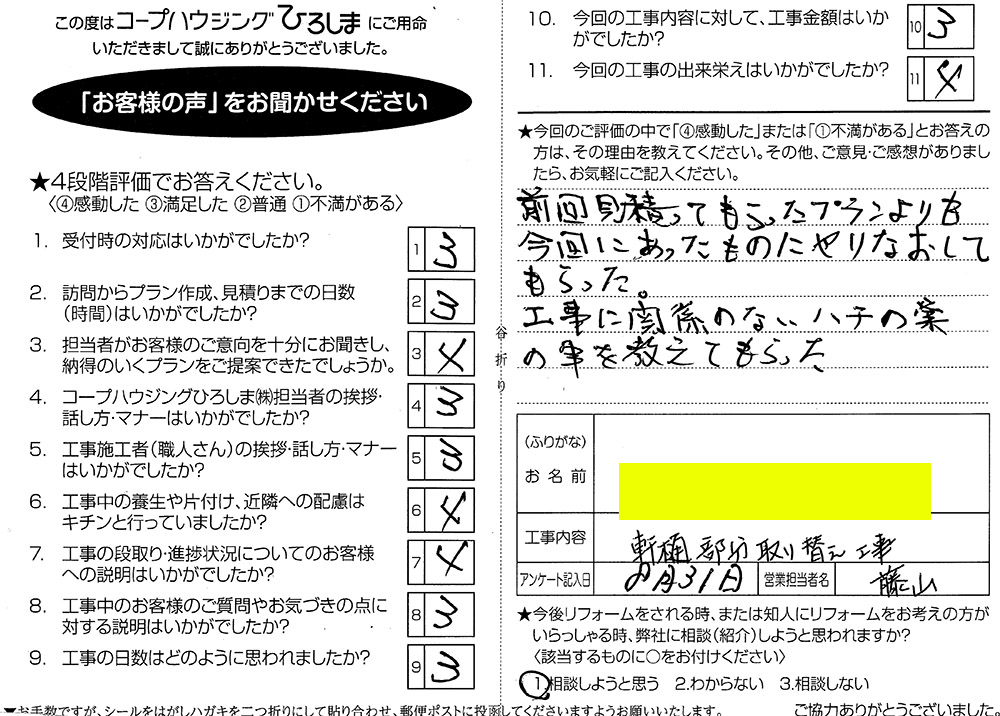 この度はコープハウジングひろしまにご用命
いただきまして誠にありがとうございました。
「お客様の声」をお聞かせください
★4段階評価でお答えください。
〈④感動した ③満足した ②普通 ①不満がある〉
1. 受付時の対応はいかがでしたか?
1 3
2. 訪問からプラン作成、見積りまでの日数
(時間)はいかがでしたか?
2 3
3. 担当者がお客様のご意向を十分にお聞きし、
納得のいくプランをご提案できたでしょうか。
3 4
4. コープハウジングひろしま㈱担当者の挨拶・
話し方・マナーはいかがでしたか?
4 3
5. 工事施工者(職人さん)の挨拶・話し方・マナー
はいかがでしたか?
5 3
6. 工事中の養生や片付け、近隣への配慮は
キチンと行っていましたか?
6 4
7. 工事の段取り・進捗状況についてのお客様
への説明はいかがでしたか?
7 4
8. 工事中のお客様のご質問やお気づきの点に
対する説明はいかがでしたか?
8 3
9. 工事の日数はどのように思われましたか?
9 3
▼お手数ですが、シールをはがしハガキを二つ折りにして貼り合わせ、郵便ポストに投函してくださいますようお願いいたします。
谷折り
10. 今回の工事内容に対して、工事金額はいか
がでしたか?
10 3
11. 今回の工事の出来栄えはいかがでしたか?
11 4
★今回のご評価の中で「④感動した」または「①不満がある」とお答えの
方は、その理由を教えてください。その他、ご意見・ご感想がありまし
たら、お気軽にご記入ください。
前回見積ってもらったプランよりも
今回にあったものにやりなおして
もらった。
工事に関係のないハチの巣
の事を教えてもらった
(ふりがな)
お名前
工事内容 軒樋部分取り替え工事
アンケート記入日 月31日 営業担当者名 藤山
★今後リフォームをされる時、または知人にリフォームをお考えの方が
いらっしゃる時、弊社に相談(紹介)しようと思われますか?
〈該当するものに○をお付けください〉
1.相談しようと思う 2.わからない 3.相談しない
ご協力ありがとうございました。